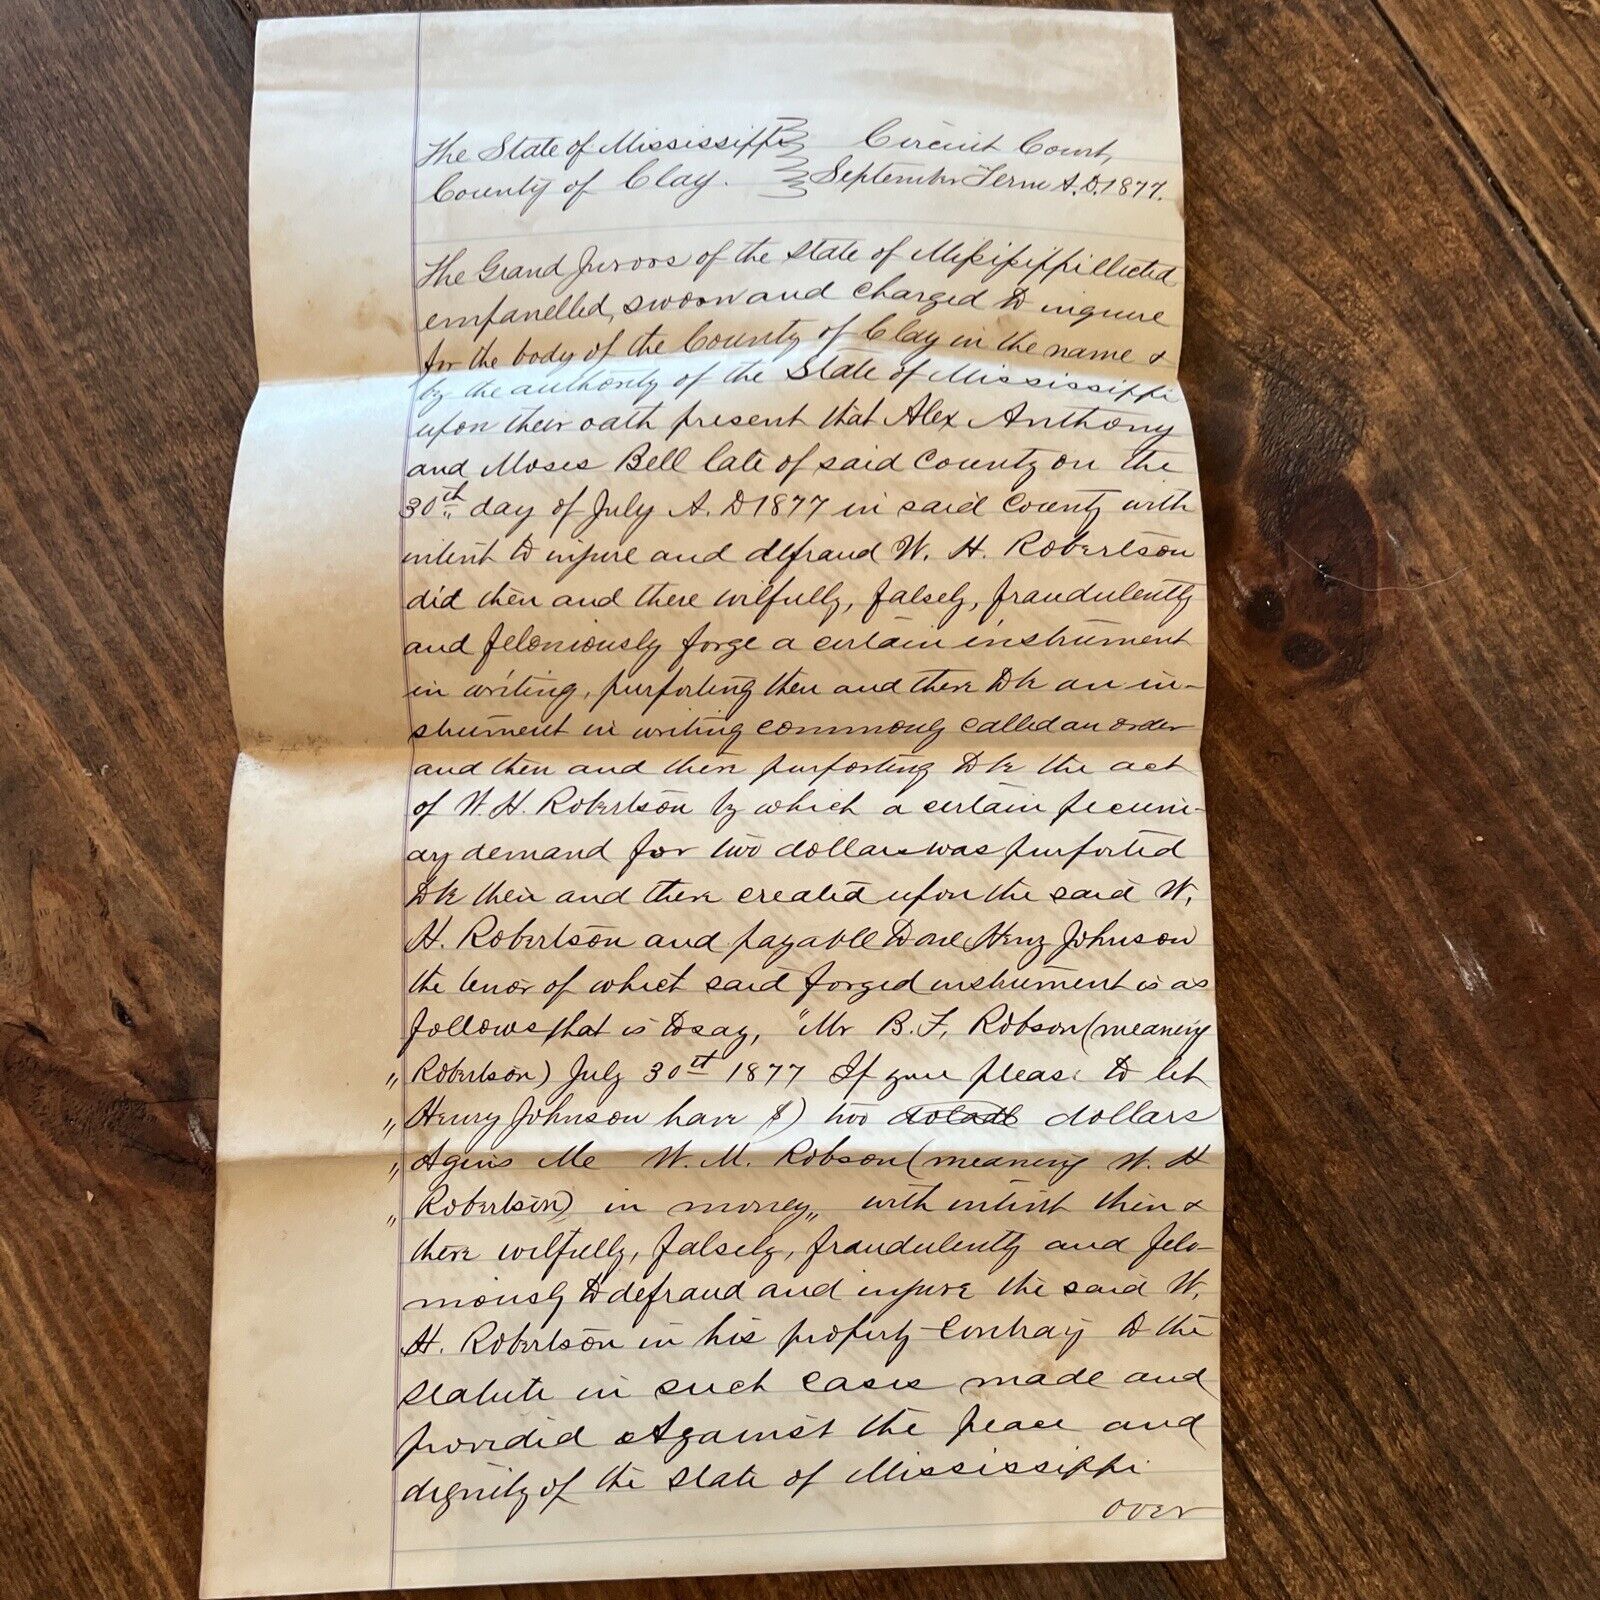 The State of Mississippi Circuit Court,
County of Clay. September Term A.D. 1877.
The Grand Jurors of the State of Mississippi ellected
empanelled, sworn and charged to inquire
for the body of the County of Clay in the name &
by the authority of the State of Mississippi
upon their oath present that Alex Anthony
and Moses Bell late of said County on the
30th day of July A. D 1877 in said County with
intent to injure and defraud W. H. Robertson
did then and there wilfully, falsely, fraudulently
and feloniously forge a certain instrument
in writing, purporting then and there to be an in-
strument in writing commonly called an order
and then and there purporting to be the act
of W. H. Robertson by which a certain pecuni-
ary demand for two dollars was purported
to be then and there created upon the said W.
H. Robertson and payable to one Henry Johnson
the tenor of which said forged instrument is as
follows that is to say, "Mr B. F. Robson (meaning
" Robertson) July 30th 1877 If you please to let
" Henry Johnson have $) two dollars
" Agins Me W. M. Robson (meaning W. H
" Robertson) in money" with intent then &
there wilfully, falsely, fraudulently and felo-
niously to defraud and injure the said W.
H. Robertson in his property Contrary to the
statute in such cases made and
provided Against the peace and
dignity of the State of Mississippi
over